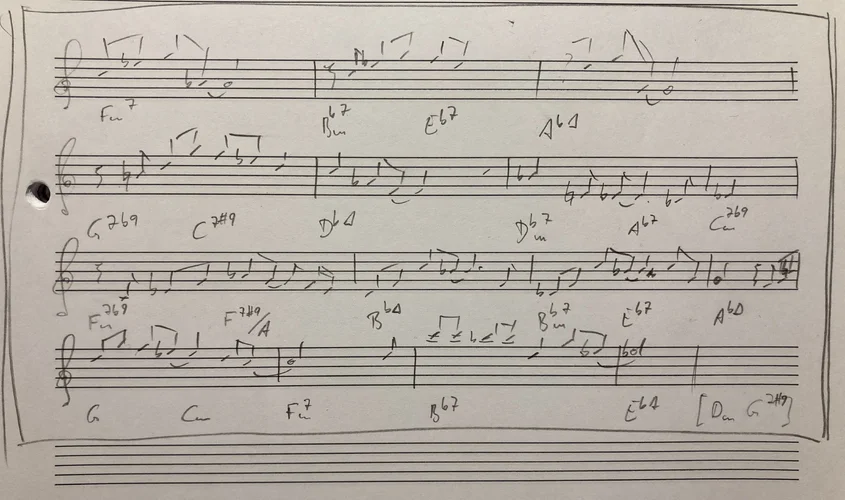 Fm7 Bbm7 Eb7 AbΔ
G7b9 C7#9 DbΔ Dbm7 Ab7 Cm7b9
Fm7b9 F7#9/A BbΔ Bbm7 Eb7 AbΔ
G Cm Fm7 Bb7 EbΔ [Dm G7#9]